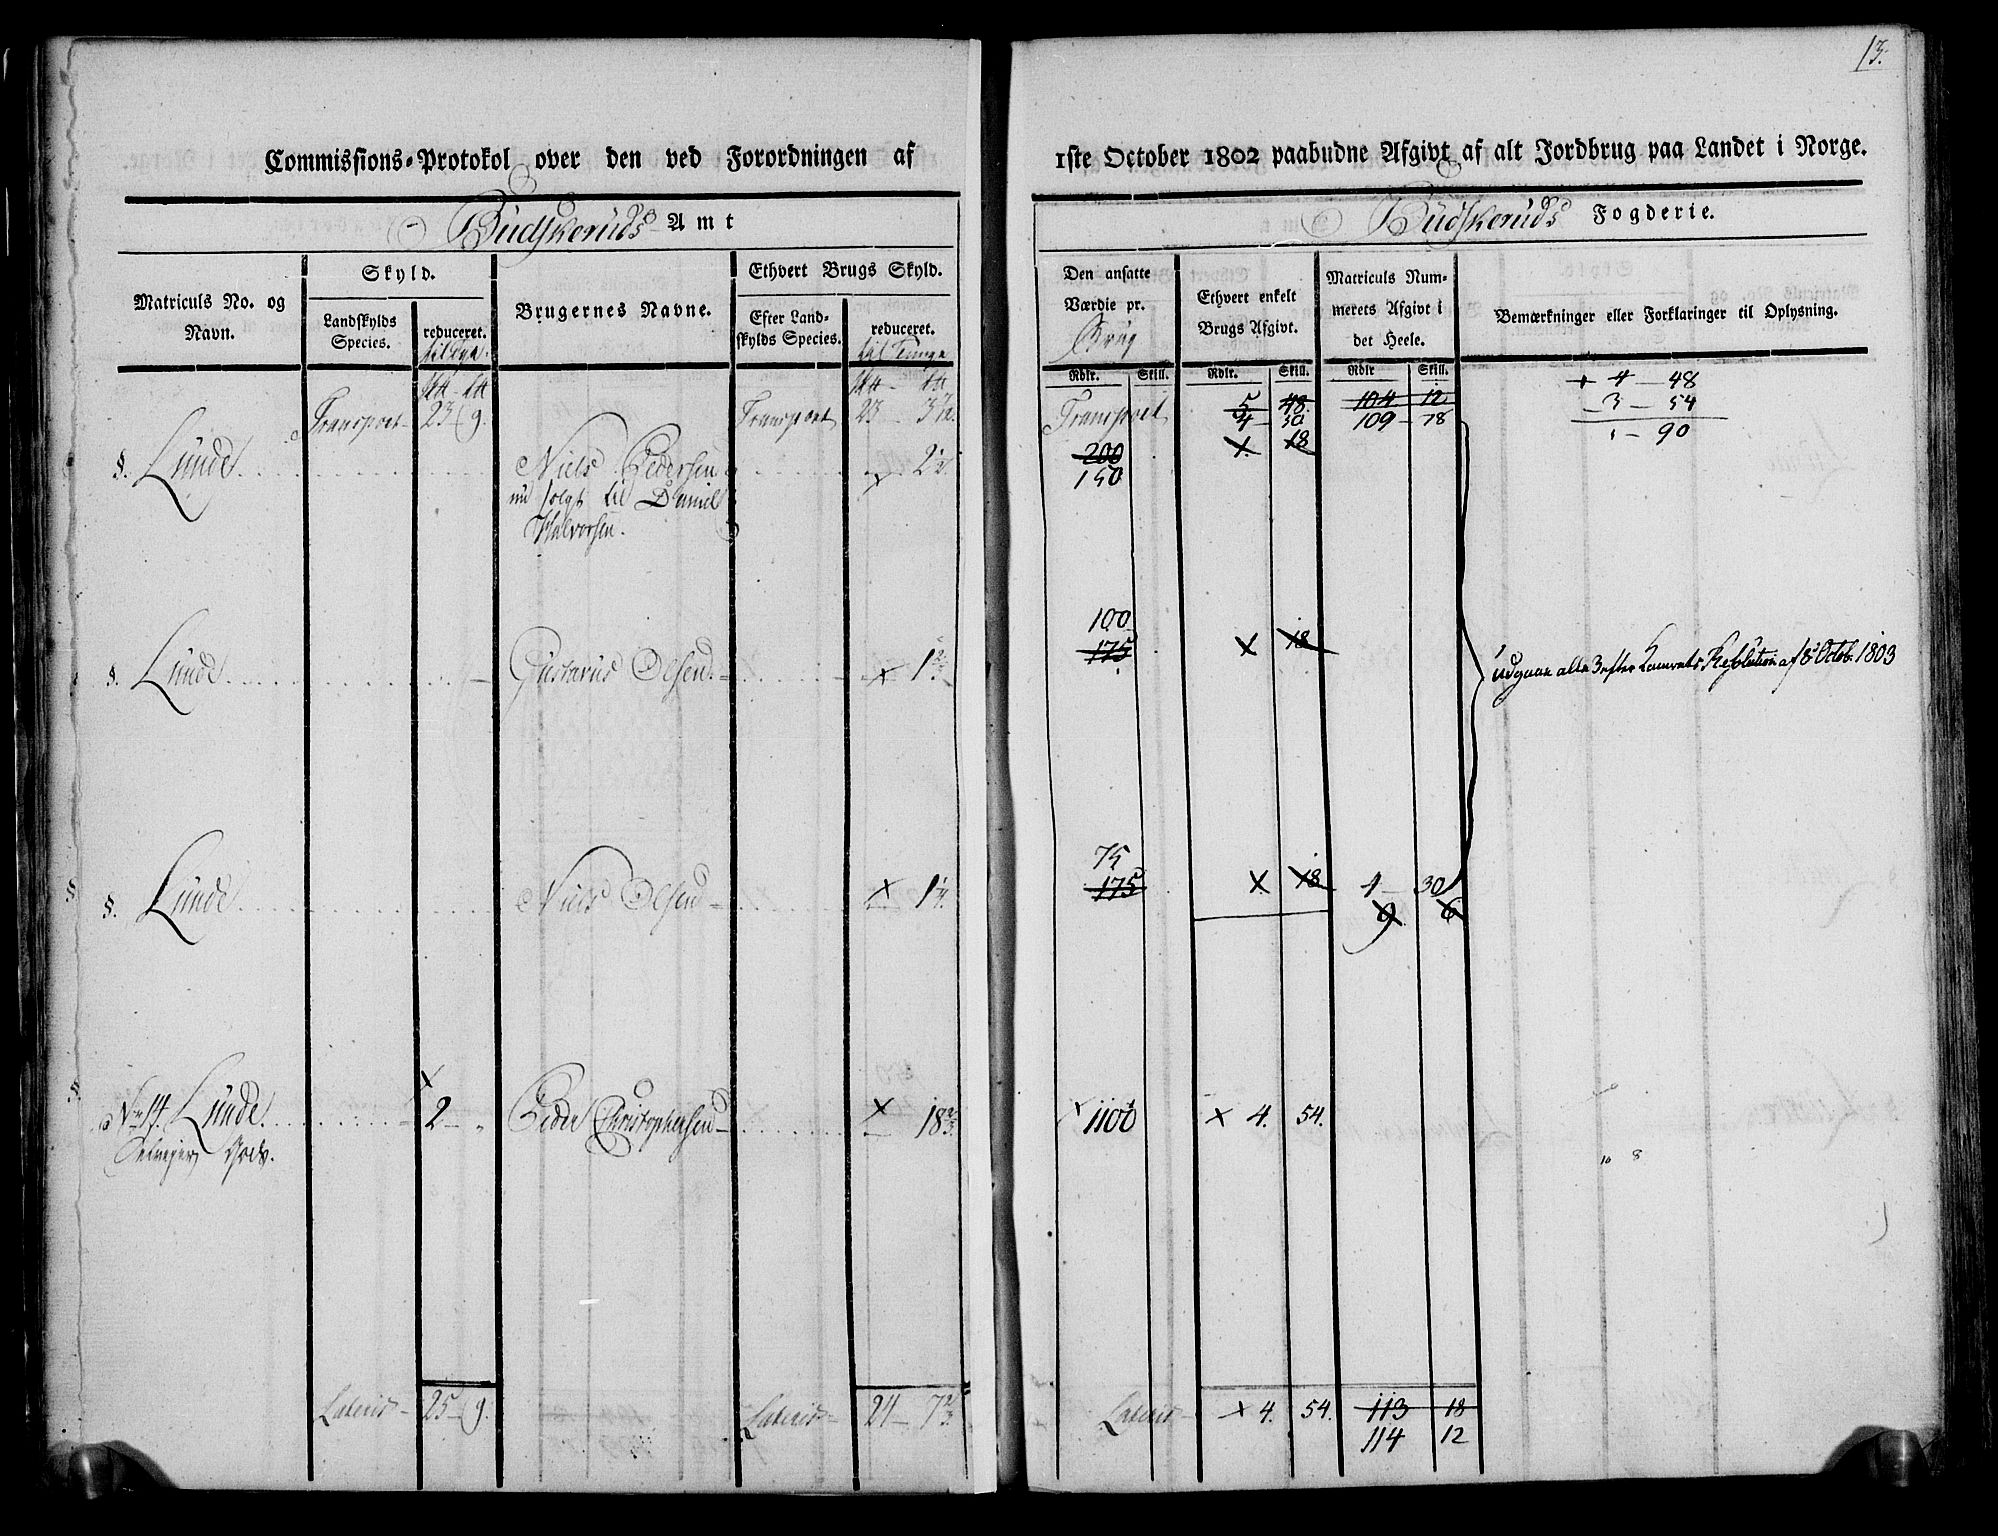 13.
Commissions-Protokol over den ved Forordningen af 1ste October 1802 paabudne Afgivt af alt Jordbrug paa Landet i Norge.
Budskeruds Amt
Budskeruds Fogderie.
Matriculs No. og Navn.
Skyld.
Landskylds Species.
reduceret.
Brugernes Navne.
Ethvert Brugs Skyld.
Efter Landskylds Species.
reduceret.
til Tunge
Den ansatte Værdie pr.
Brug
Ethvert enkelt Brugs Afgivt.
Matriculs Nummerets Afgivt i det Heele.
Bemærkninger eller Forklaringer til Oplysning.
Rdlr. Skill. Rdlr. Skill. Rdlr Skill.
Transport 23 9. Transport 23 Transport 5 48. 104 12
4 30 109 78
+ 4 - 48
- 3 - 54
1 - 90
§. Lunde Niels Pedersen 200 x 18
nu solgt til Daniel 150
Halvorsen.
100
§. Lunde Gustavus Olsen x 175 x 18
udgaar alle 3 efter Kamrets Resolution af 8 Octob. 1803
75
§. Lunde Niels Olsen x 175 x 18 4 30
9 6
No 14. Lunde x 2 Peder Christophersen x 18 2/3 x 1100 x 4. 54.
10 8
Lateris 25 9. Lateris 24 7 2/3 Lateris x 4. 54. 113 18
114 12